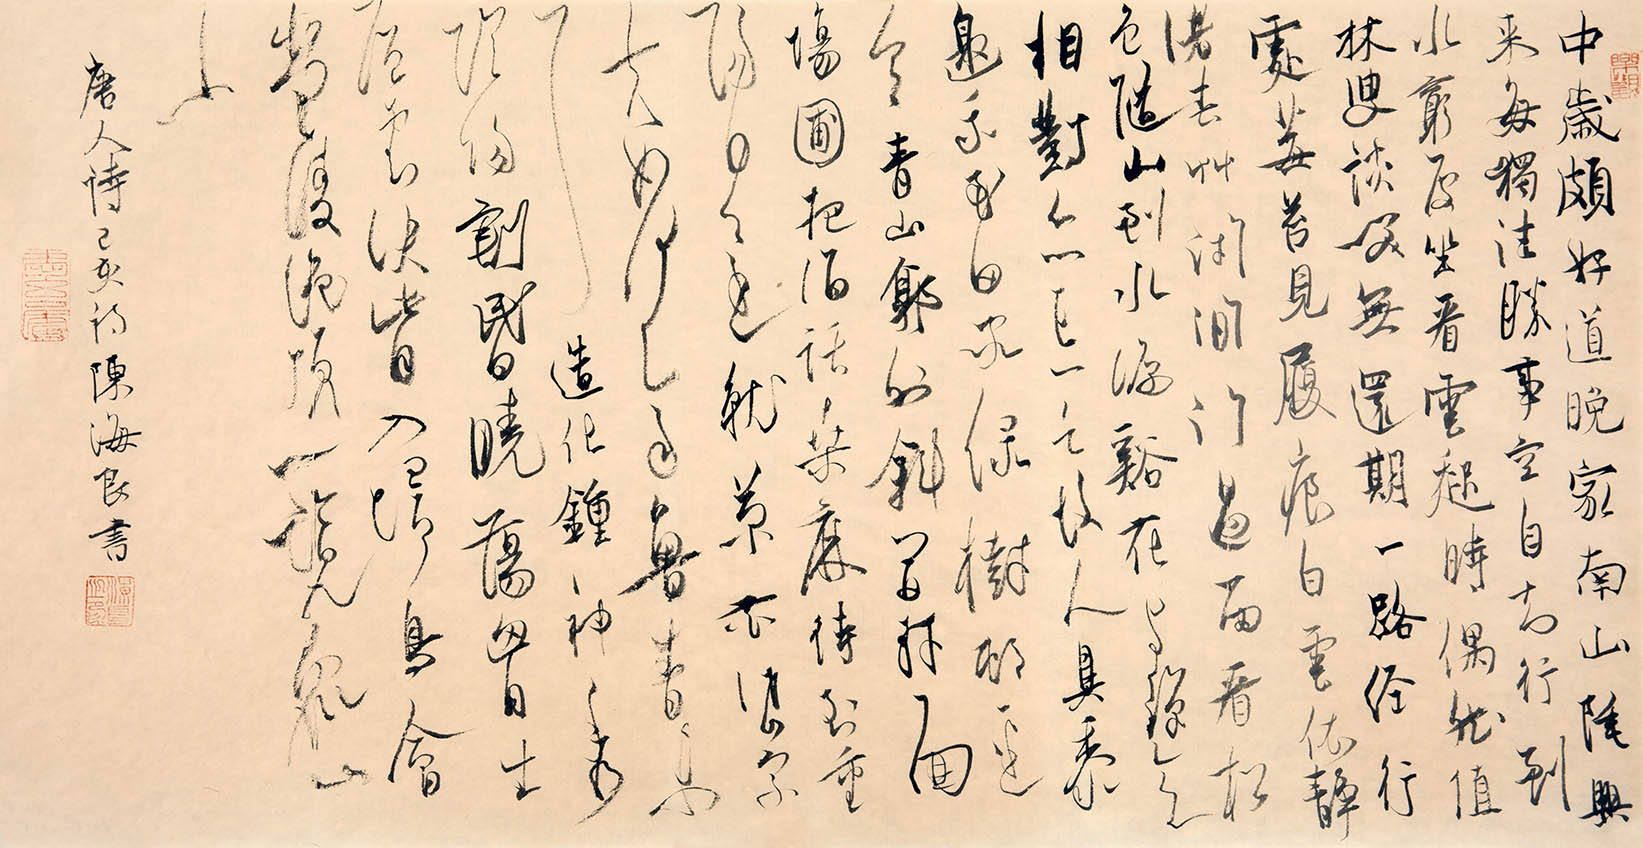 中歲頗好道晚家南山陲興
来每獨往勝事空自知行到
水窮處坐看雲起時偶然值
林叟談笑無還期一路经行
處莓苔見履痕白雲依靜
渚春艸閒門過雨看松
色隨山到水源谿花与禪意
相對亦忘言故人具黍
邀我至田家綠樹邨邊
合青山郭外斜開軒面
場圃把酒話桑麻待到重
陽日還來就菊花岱宗
夫如何齊魯青未
了造化鍾神秀
陰陽割昏曉蕩胸生
層雲決眥入歸鳥會
當凌絕頂一覽衆山
小
唐人詩己亥初陳海良書